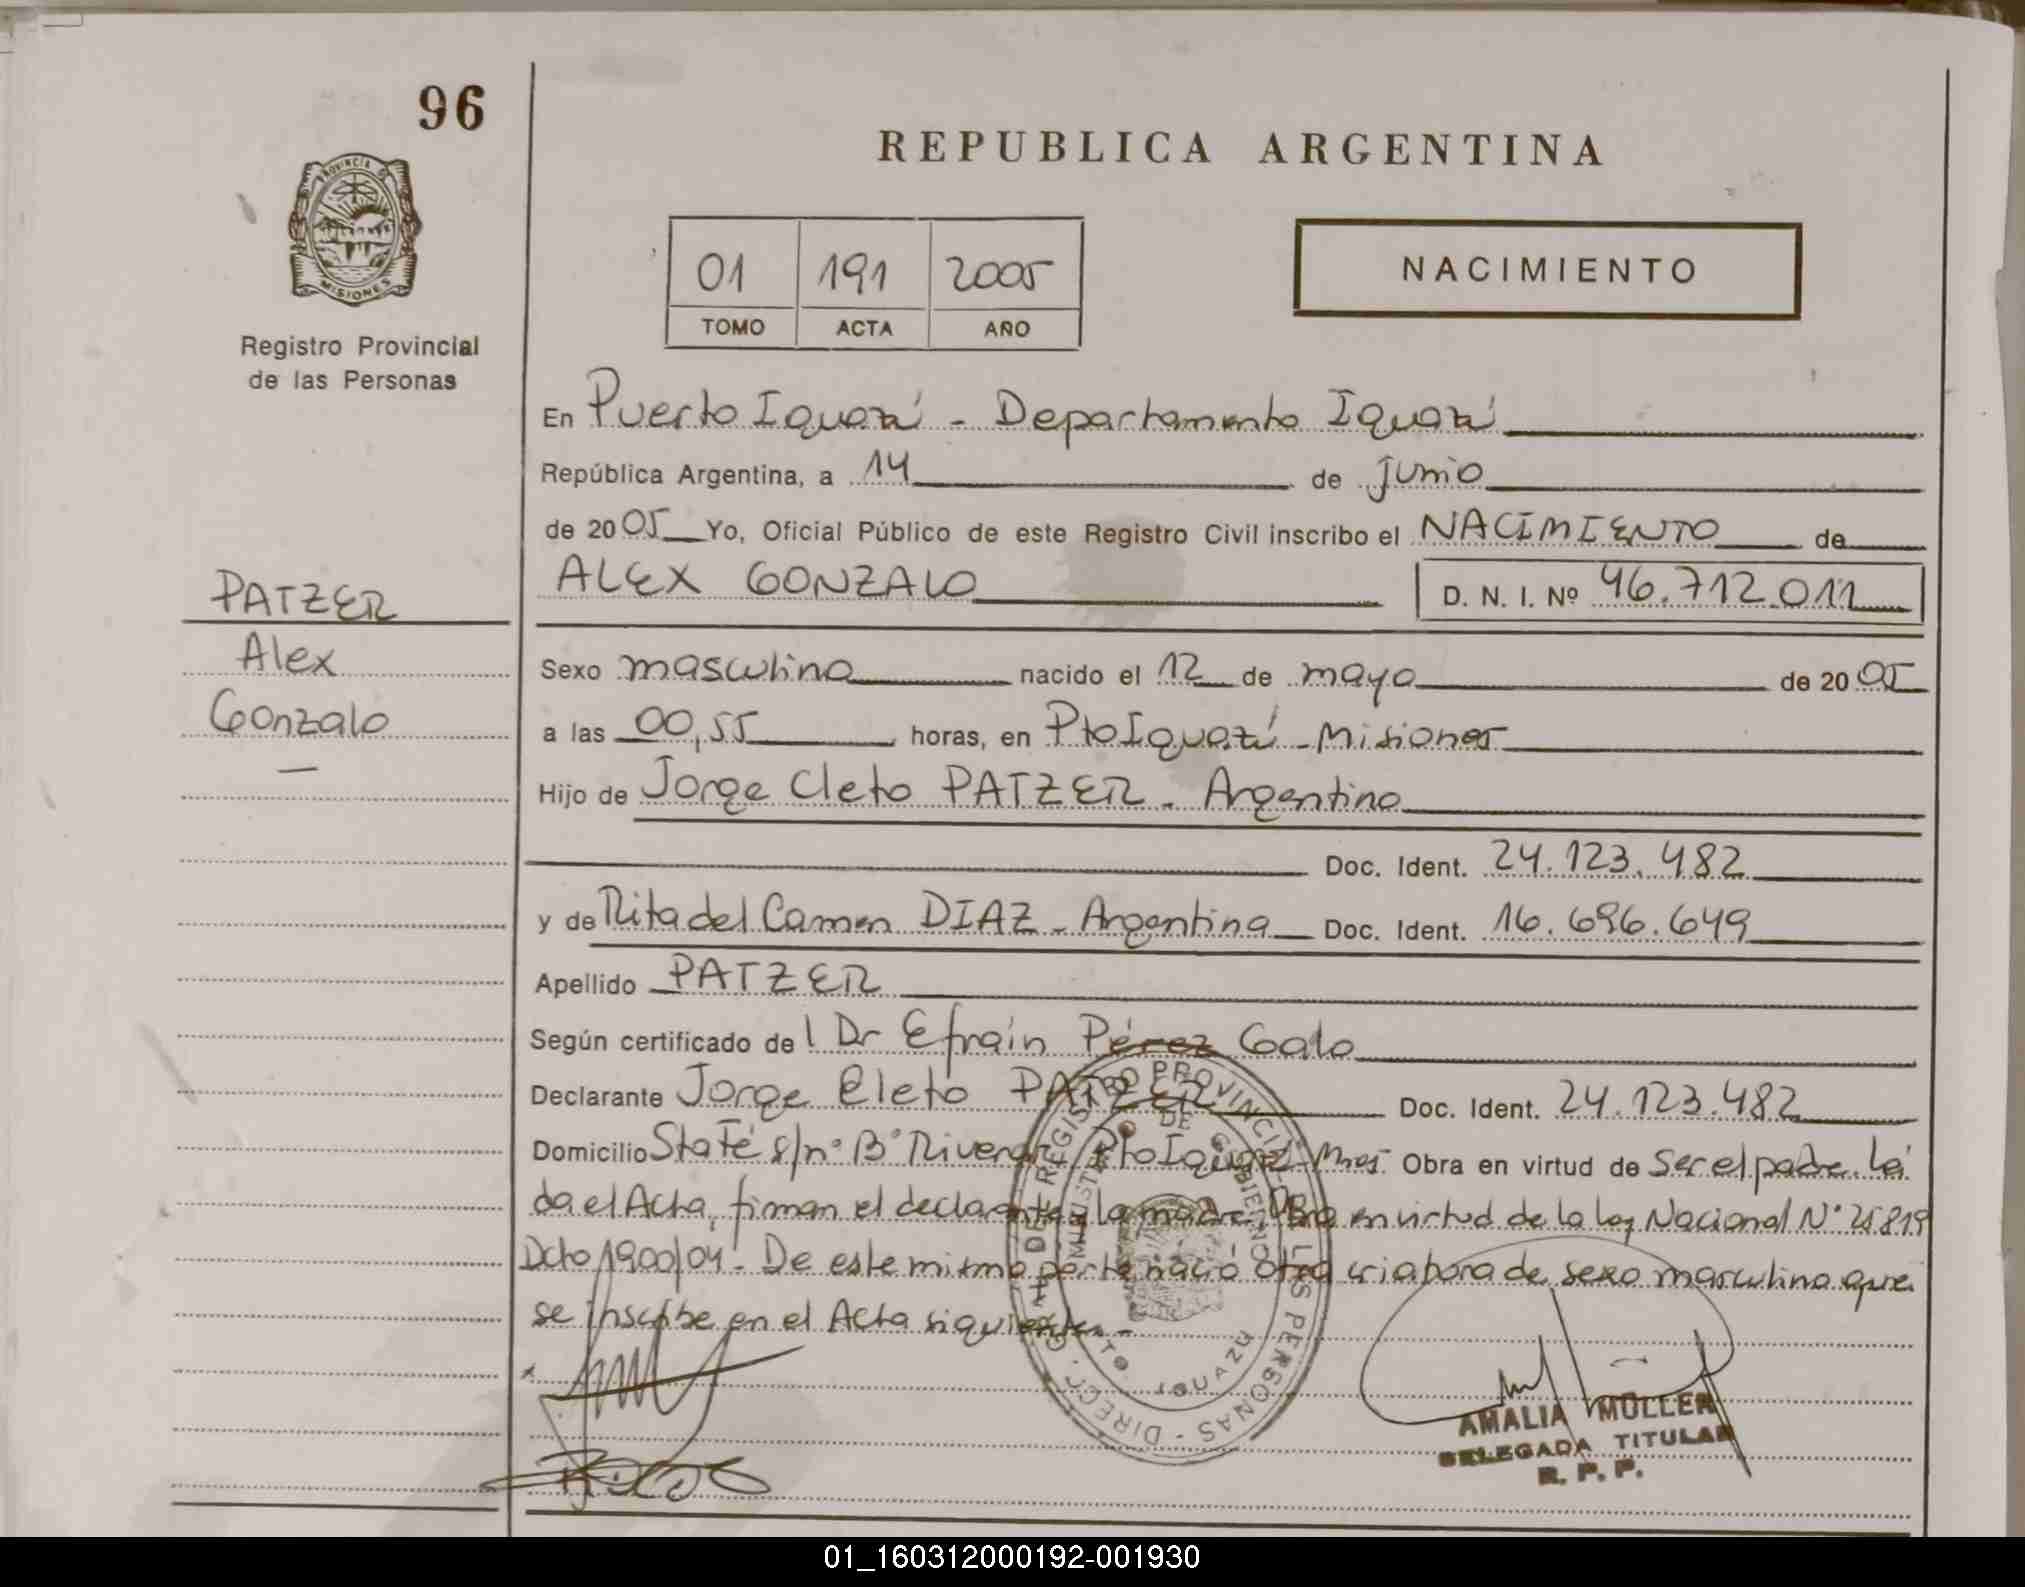 96
PROVINCIA DE
MISIONES
Registro Provincial
de las Personas
REPUBLICA ARGENTINA
01 191 2005
TOMO ACTA AÑO
NACIMIENTO
En Puerto Iguazú - Departamento Iguazú
República Argentina, a 14 de junio
de 2005 Yo, Oficial Público de este Registro Civil inscribo el NACIMIENTO de
ALEX GONZALO D. N. I. Nº 46.712.011
PATZER
Alex
Gonzalo
Sexo masculino nacido el 12 de mayo de 2005
a las 00,55 horas, en Pto Iguazú - Misiones
Hijo de Jorge Cleto PATZER - Argentino
Doc. Ident. 24.123.482
y de Rita del Carmen DIAZ - Argentina Doc. Ident. 16.696.649
Apellido PATZER
Según certificado del Dr Efraín Pérez Galo
Declarante Jorge Cleto PATZER Doc. Ident. 24.123.482
Domicilio Sta Fé s/nº Bº Rivera Pto Iguazú - Mnes. Obra en virtud de Ser el padre. Leí
da el Acta, firman el declarante y la madre. Obra en virtud de la ley Nacional Nº 25819
Dcto 1900/04 - De este mismo parto nació otra criatura de sexo masculino que
se inscribe en el Acta siguiente. -
DIRECC. GRAL. DEL REGISTRO PROVINCIAL DE LAS PERSONAS
MINISTERIO DE GOBIERNO
PTO. IGUAZU
AMALIA MULLER
DELEGADA TITULAR
R. P. P.
01_160312000192-001930